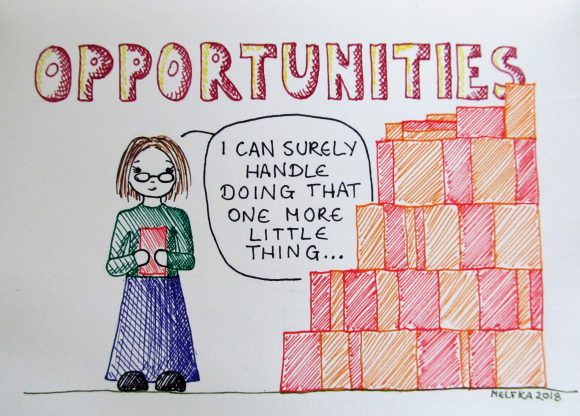 OPPORTUNITIES
I CAN SURELY
HANDLE
DOING THAT
ONE MORE
LITTLE
THING...
MELFKA 2018